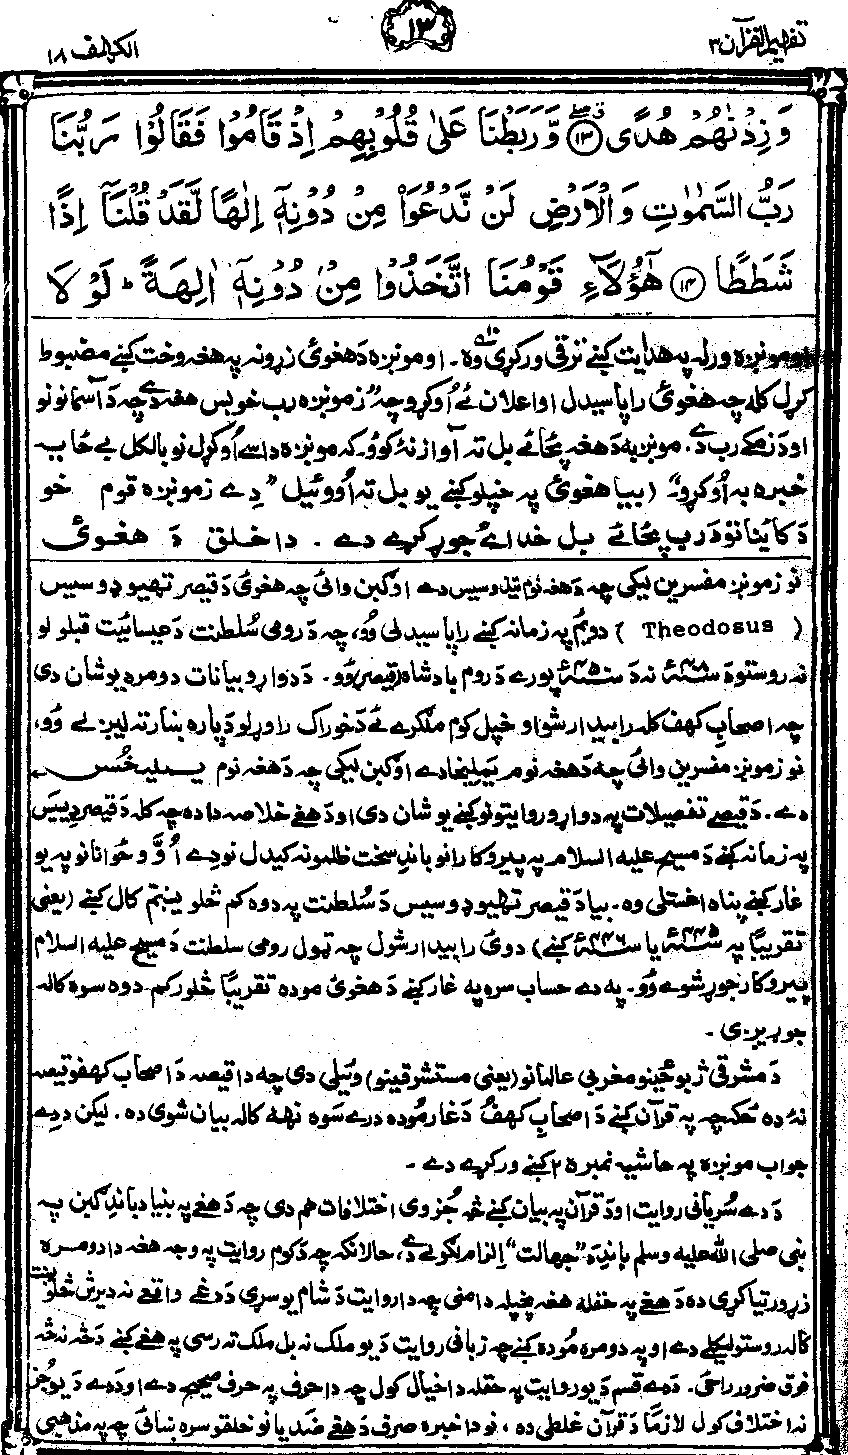 تفهیم القرآن ۳
۱۳
الکهف ۱۸
وَزِدْنٰهُمْ هُدًی ۝۱۳ وَّرَبَطْنَا عَلٰی قُلُوْبِهِمْ اِذْ قَامُوْا فَقَالُوْا رَبُّنَا
رَبُّ السَّمٰوٰتِ وَالْاَرْضِ لَنْ نَّدْعُوَاۡ مِنْ دُوْنِهٖۤ اِلٰهًا لَّقَدْ قُلْنَاۤ اِذًا
شَطَطًا ۝۱۴ هٰۤؤُلَآءِ قَوْمُنَا اتَّخَذُوْا مِنْ دُوْنِهٖۤ اٰلِهَةً ؕ لَوْ لَا
مونږه ورله په هدایت کښے ترقی ورکړی وه۔ او مونږه دَ هغوئ زړونه په هغه وخت کښے مضبوط
کړل کله چه هغوئ راپاسیدل او اعلان ئے اُوکړو چه "زمونږه رب خو بس هغه دے چه دَ آسمانونو
او دَ زمکے رب دے. مونږ به دَ هغه په ځائے بل ته آواز نهٔ کوو. که مونږه داسے اُوکړل نو بالکل بے ځایه
خبره به اُوکړو" (بیا هغوئ په خپلو کښے یو بل ته اُووئیل" دِے زمونږه قوم خو
دَ کائیناتو دَ رب په ځائے بل خدایٔے جوړ کړے دے . دا خلق دَ هغوئ
نو زمونږه مفسرین لیکی چه دَ هغه نوم تیذوسیس دے او ګبن وائی چه هغوئ دَ قیصر تهیوډوسیس
( Theodosus ) دویمٔ په زمانه کښے راپاسیدلی وُو، چه دَ رومی سُلطنت دَ عیسائیت قبلولو
نه روستو دَ سنه ۴۰۸ نه دَ سنه ۴۵۰ پورے دَ روم بادشاه (قیصر) وُو۔ دَ دواړو بیانات دومره یو شان دی
چه اصحابِ کهف کله رابیدار شو او خپل کوم ملګرے ئے دَ خوراک راوړلو دَپاره ښار ته لیږلے وُو،
نو زمونږه مفسرین وائی چه دَ هغه نوم یملیخا دے او ګبن لیکی چه دَ هغه نوم
دے. دَ قیصے تفصیلات په دواړو روایتونو کښے یو شان دی او دَ هغے خلاصه دا ده چه کله دَ قیصر ډیسیس
په زمانه کښے دَ مسیح علیه السلام په پیروکارانو باندِ سخت ظلمونه کیدل نو دِے اُوؤ ځوانانو په یو
غار کښے پناه اخستلی وه۔ بیا دَ قیصر تهیوډوسیس دَ سُلطنت په دوه کم څلویښتم کال کښے (یعنی
تقریبًا په سنه ۴۴۵ یا سنه ۴۴۶ کښے) دویٔ رابیدار شول چه ټول رومی سلطنت دَ مسیح علیه السلام
پیروکار جوړ شوے وُو۔ په دے حساب سره په غار کښے دَ هغوئ موده تقریبًا څلور کم دوه سوه کاله
جوړیږی۔
دَ مشرقی ژبو ځینو مغربی عالمانو (یعنی مستشرقینو) وئیلی دی چه دا قیصه دَ اصحاب کهفو قیصه
نهٔ ده ځکه چه په قرآن کښے دَ اصحابِ کهفُ دَ غار مُوده درے سَوه نههٔ کاله بیان شوی ده. لیکن دِدے
جواب مونږه په حاشیه نمبره ۲ کښے ورکړے دے ۔
دَ دے سُریانی روایت او دَ قرآن په بیان کښے څهٔ جُزوی اختلافات هم دی چه دَ هغے په بنیاد باندِ ګبن په
نبی صلی الله علیه وسلم باندِ دَ "جهالت" اِلزام لګولے دے، حالانکه چه دَ کوم روایت په وجه هغه دا دومره
زړورتیا کړی ده دَ هغے په حقله هغه پخپله دا منی چه دا روایت دَ شام یو سړی دَ دغے واقعے نه دیرش څلویښت
کاله روستو لیکلے دے او په دومره مُوده کښے چه زبانی روایت دَ یو ملک نه بل ملک ته رسی په هغے کښے دَ څه نه څه
فرق ضرور راځی۔ دَدے قسم دَ یو روایت په حقله دا خیال کول چه دا حرف په حرف صحیح دے او دَدے دَ یو جُز
نه اختلاف کول لازمًا دَ قرآن غلطی ده، نو دا خبره صرف دَ هغے ضدیانو خلقو سره ښائی چه په مذهبی